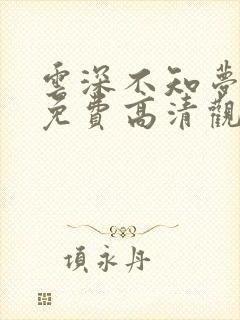 雲深不知夢
免費高清觀
項永丹